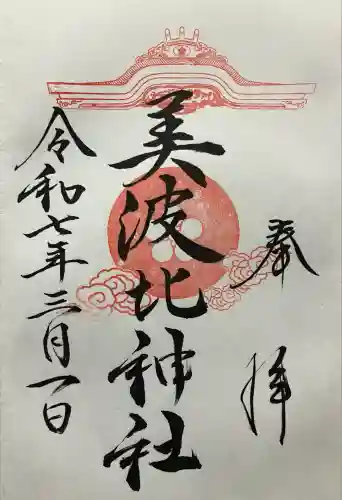 奉拝
美波比神社
令和七年三月一日